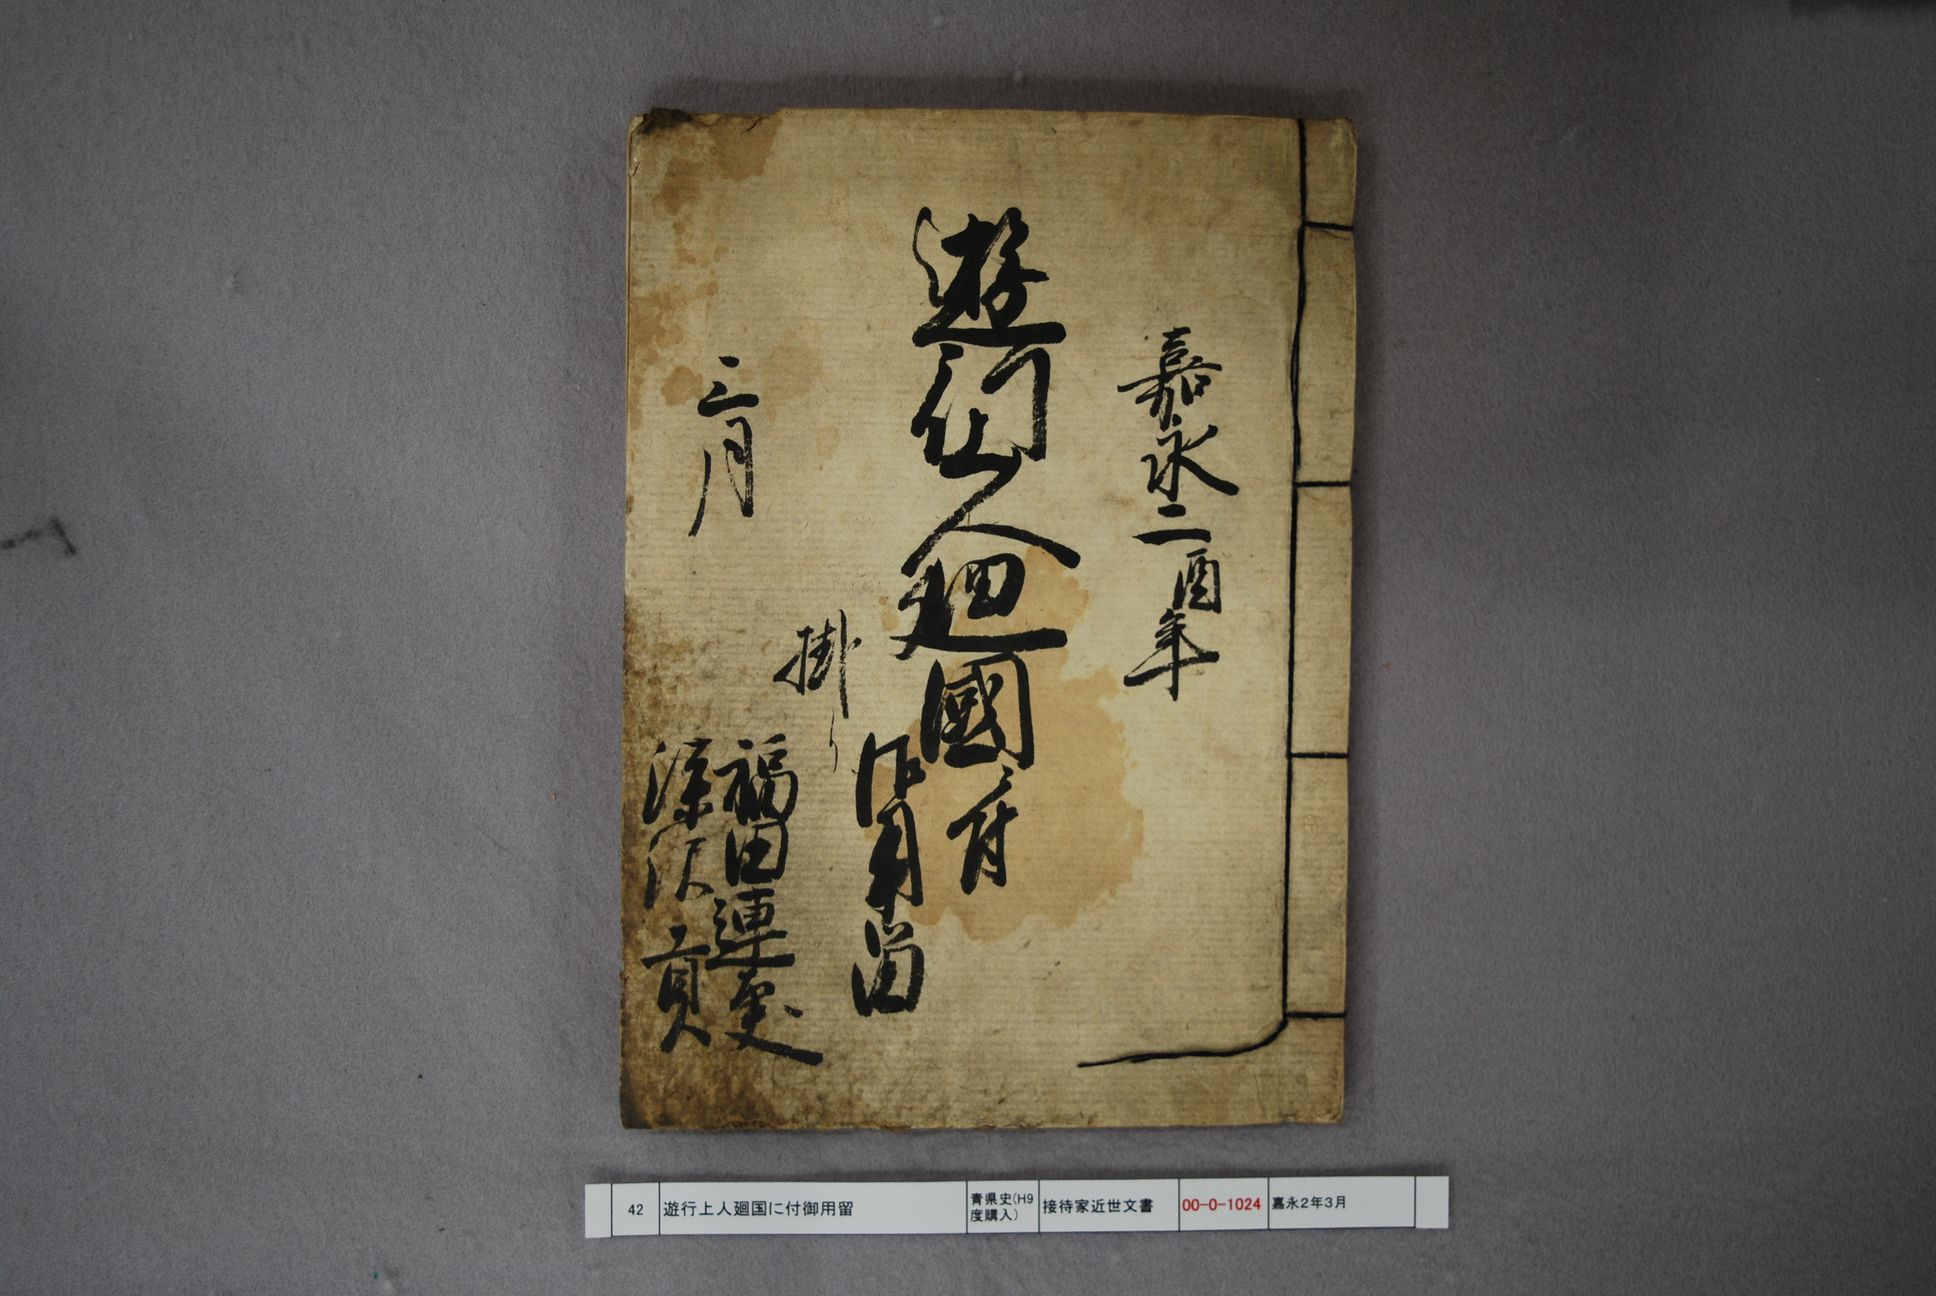 嘉永二酉年
遊行上人廻國ニ付
御用留
三月
掛り
福田連
深沢
42
遊行上人廻国に付御用留
青県史(H9
度購入)
接待家近世文書
00-0-1024
嘉永2年3月